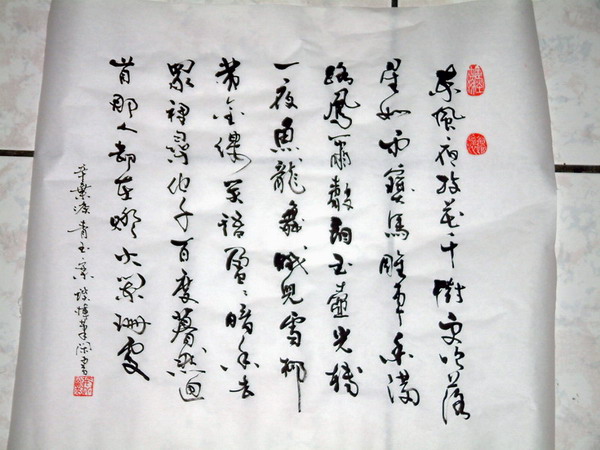 東風夜放花千樹更吹落
星如雨寶馬雕車香滿
路鳳簫聲動玉壺光轉
一夜魚龍舞蛾兒雪柳
黃金縷笑語盈〻暗香去
眾裡尋他千百度驀然迴
首那人卻在燈火闌珊處
辛棄疾青玉案